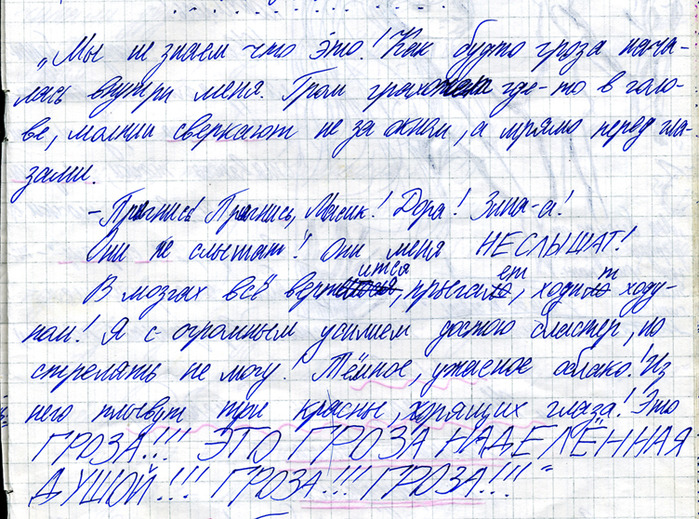 „Мы не знаем что это! Как будто гроза нача-
лась внутри меня. Гром грохочет где-то в голо-
ве, молнии сверкают не за окном, а прямо перед гла-
зами.
- Проснись! Проснись, Масик! Дора! Зина-а!
Они не слышат! Они меня НЕ СЛЫШАТ!
В мозгах всё вертится, прыгает, ходит ходу-
ном! Я с огромным усилием достаю бластер, но
стрелять не могу! Тёмное, ужасное облако! Из
него плывут три красные, горящих глаза! Это
ГРОЗА!!! ЭТО ГРОЗА НАДЕЛЁННАЯ
ДУШОЙ!!! ГРОЗА!!! ГРОЗА!!!"